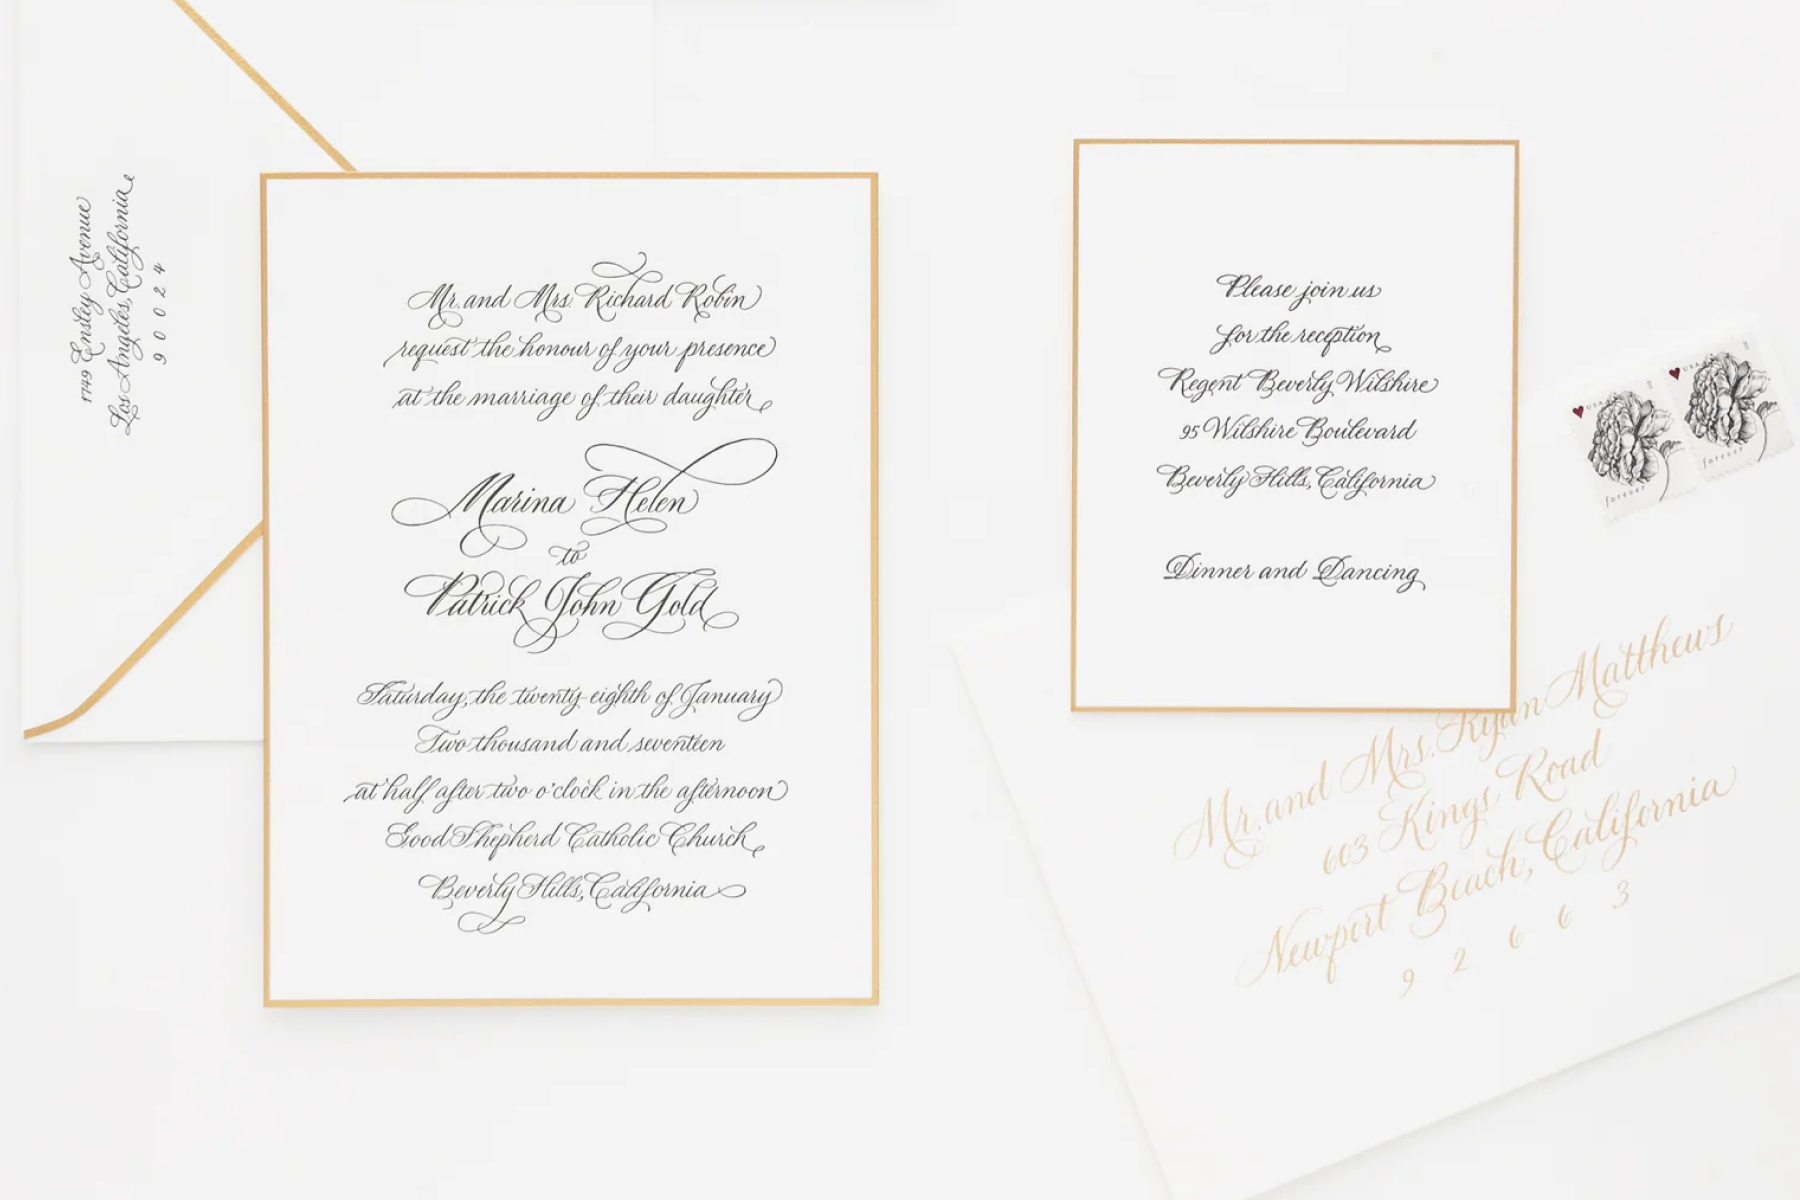 1749 Ensley Avenue
Los Angeles, California
90024
Mr. and Mrs. Richard Robin
request the honour of your presence
at the marriage of their daughter
Marina Helen
to
Patrick John Gold
Saturday, the twenty-eighth of January
Two thousand and seventeen
at half after two o'clock in the afternoon
Good Shepherd Catholic Church
Beverly Hills, California
Please join us
for the reception
Regent Beverly Wilshire
95 Wilshire Boulevard
Beverly Hills, California
Dinner and Dancing
USA
forever
USA
forever
Mr. and Mrs. Ryan Matthews
603 Kings Road
Newport Beach, California
92663